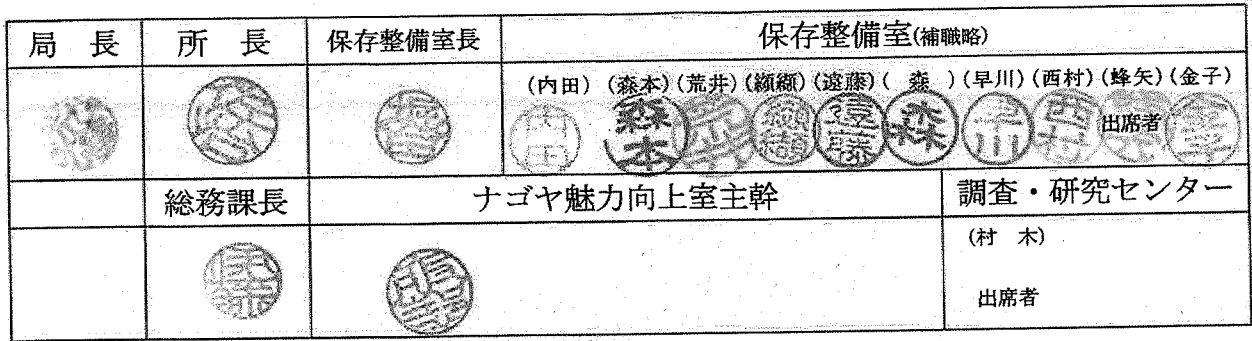 局 長 所 長 保存整備室長 保存整備室(補職略)
(内田) (森本) (荒井) (纐纈) (遠藤) ( 森 ) (早川) (西村) (蜂矢) (金子)
内田 森本 纐纈 遠藤 森 早川 西村 出席者 金子
総務課長 ナゴヤ魅力向上室主幹 調査・研究センター
(村 木)
出席者